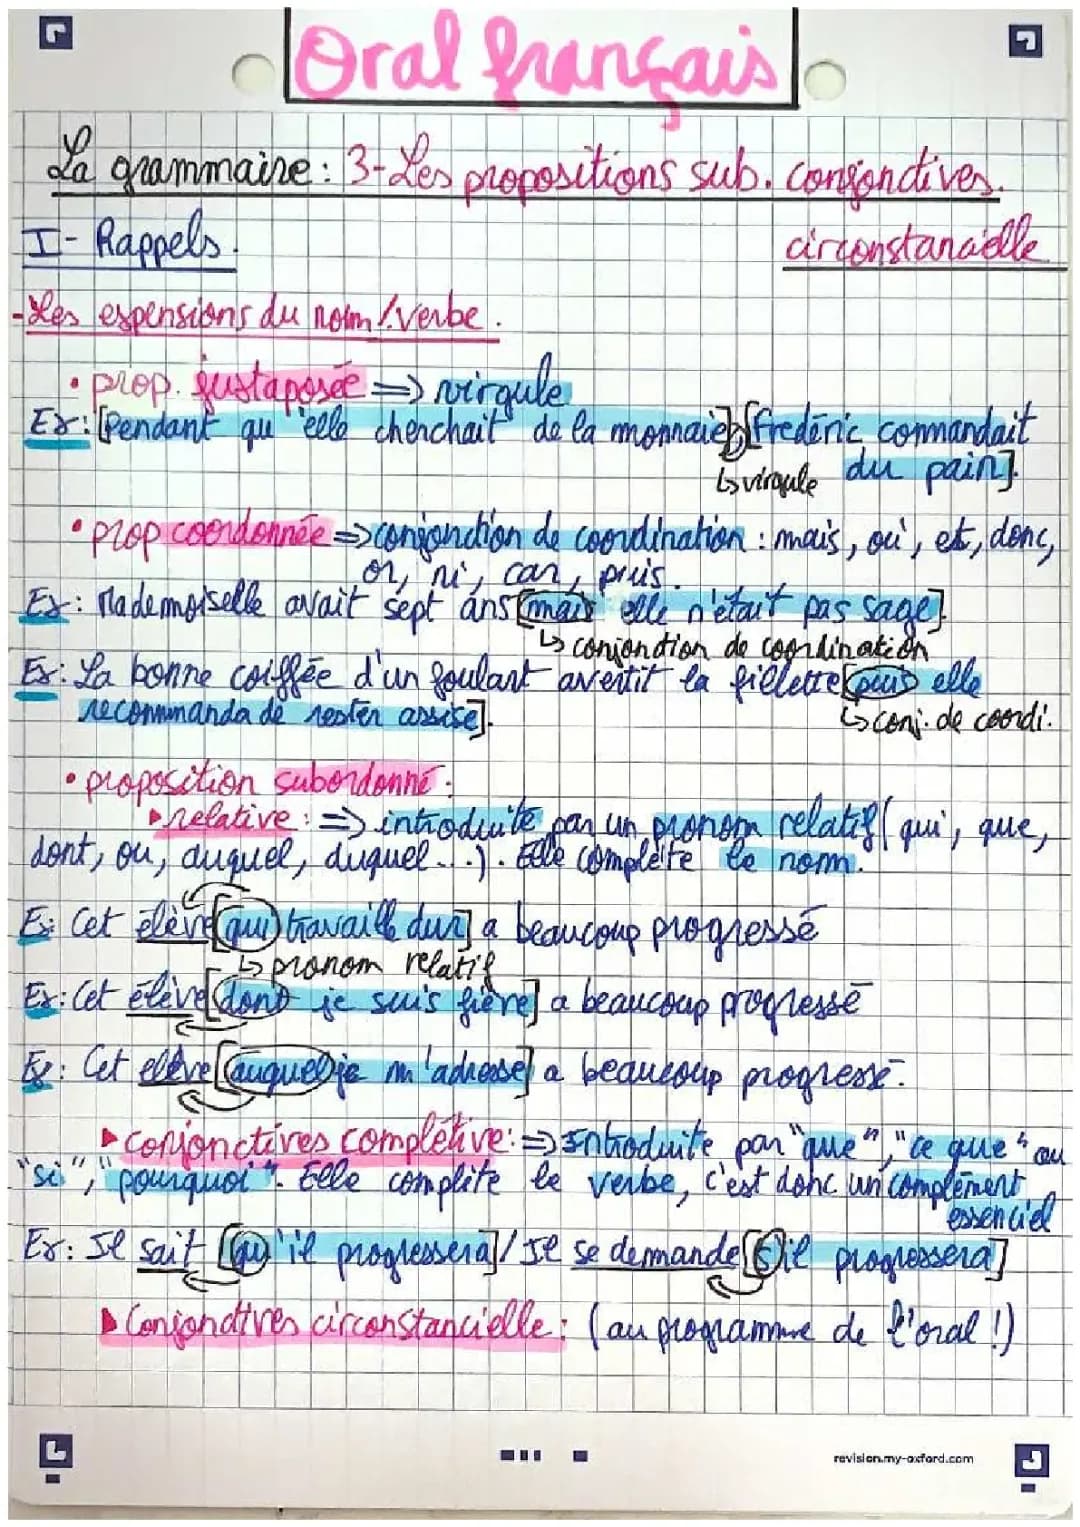 Oral français
La grammaire : 3-Les propositions sub. conjonctives.
I- Rappels. circonstancielle
-Les expensions du nom/verbe.
• prop. justaposée => virgule
Ex: [Pendant qu'elle cherchait de la monnaie], [Fredéric commandait
↳ virgule du pain].
• prop coordonnée => conjonction de coordination : mais, ou, et, donc,
or, ni, car, puis.
Ex: Mademoiselle avait sept ans [mais elle n'était pas sage].
↳ conjonction de coordination
Ex: La bonne coiffée d'un foulart avertit la fillette [puis elle
recommanda de rester assise]. ↳ conj. de coordi.
• proposition subordonné :
▸ relative : => introduite par un pronom relatif (qui, que,
dont, ou, auquel, duquel...). Elle complète le nom.
Ex: Cet élève [qui travaille dur] a beaucoup progressé
↳ pronom relatif
Ex: Cet élève [dont je suis fière] a beaucoup progressé
Ex: Cet elève [auquel je m'adresse] a beaucoup progressé.
▸ conjonctives complétive : => Introduite par "que", "ce que" ou
"si", "pourquoi". Elle complète le verbe, c'est donc un complément
essenciel
Ex: Il sait [qu'il progressera] / Il se demande [s'il progressera]
▸ Conjonctives circonstancielle : (au programme de l'oral !)
revision.my-oxford.com